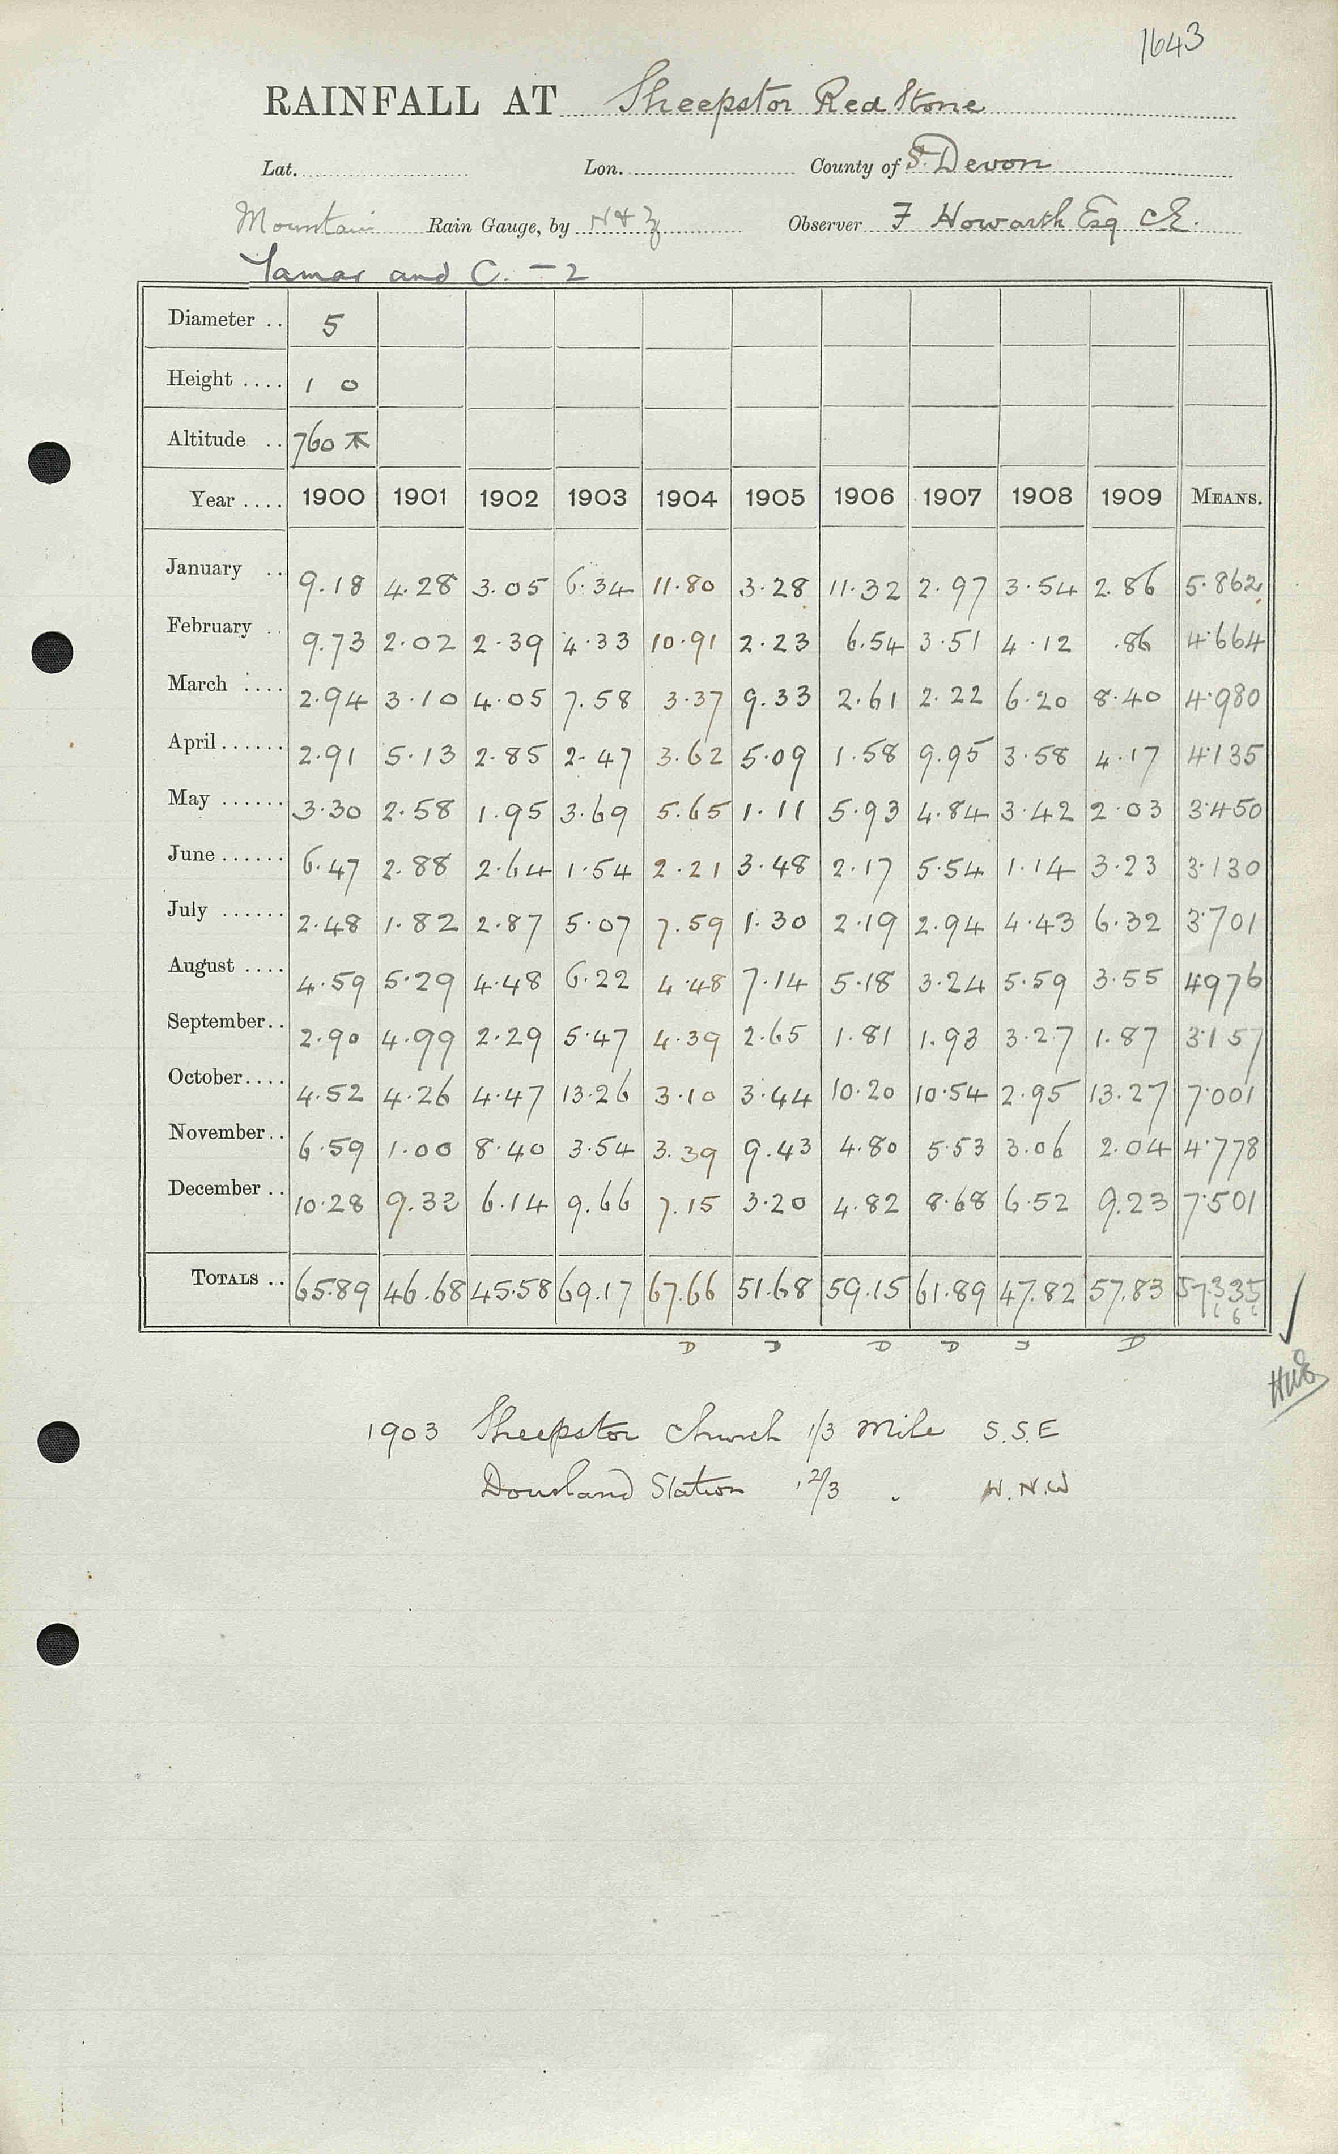 1643
RAINFALL AT Sheepstor Red Stone
Lat. Lon. County of S. Devon
Mountain Rain Gauge, by N & Z Observer F Howarth Esq CE.
Tamar and C. – 2
Diameter .. 5
Height .... 1 0
Altitude .. 760
Year .... 1900 1901 1902 1903 1904 1905 1906 1907 1908 1909 MEANS.
January .. 9.18 4.28 3.05 6.34 11.80 3.28 11.32 2.97 3.54 2.86 5.862
February .. 9.73 2.02 2.39 4.33 10.91 2.23 6.54 3.51 4.12 .86 4.664
March .... 2.94 3.10 4.05 7.58 3.37 9.33 2.61 2.22 6.20 8.40 4.980
April ...... 2.91 5.13 2.85 2.47 3.62 5.09 1.58 9.95 3.58 4.17 4.135
May ...... 3.30 2.58 1.95 3.69 5.65 1.11 5.93 4.84 3.42 2.03 3.450
June ...... 6.47 2.88 2.64 1.54 2.21 3.48 2.17 5.54 1.14 3.23 3.130
July ...... 2.48 1.82 2.87 5.07 7.59 1.30 2.19 2.94 4.43 6.32 3.701
August .... 4.59 5.29 4.48 6.22 4.48 7.14 5.18 3.24 5.59 3.55 4976
September.. 2.90 4.99 2.29 5.47 4.39 2.65 1.81 1.93 3.27 1.87 3.157
October.... 4.52 4.26 4.47 13.26 3.10 3.44 10.20 10.54 2.95 13.27 7.001
November.. 6.59 1.00 8.40 3.54 3.39 9.43 4.80 5.53 3.06 2.04 4.778
December .. 10.28 9.33 6.14 9.66 7.15 3.20 4.82 8.68 6.52 9.23 7.501
TOTALS .. 65.89 46.68 45.58 69.17 67.66 51.68 59.15 61.89 47.82 57.83 57.335
D D D D D D
1903 Sheepstor Church 1/3 Mile S.S.E
Dousland Station 1 2/3 " W.N.W